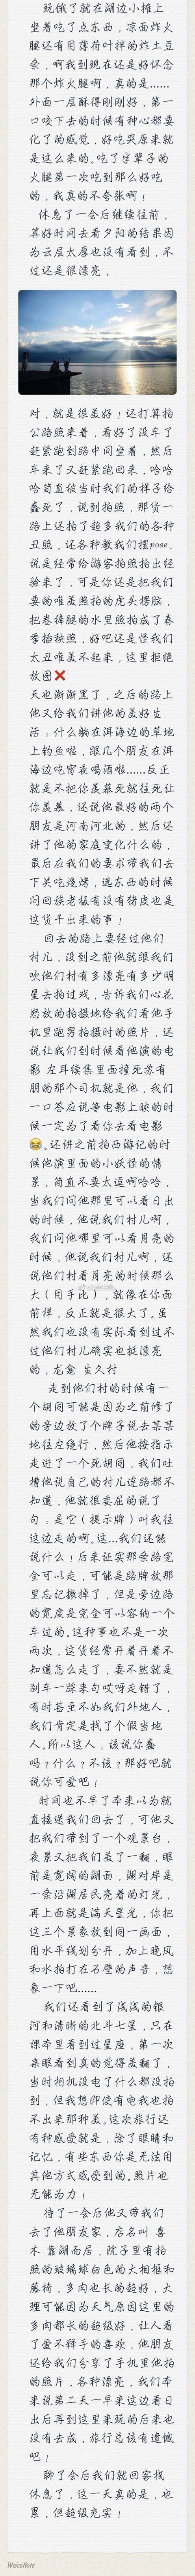 玩饿了就在湖边小摊上
坐着吃了点东西，凉面炸火
腿还有用薄荷叶拌的炸土豆
余，啊我到现在还是好怀念
那个炸火腿啊，真的是……
外面一层酥得刚刚好，第一
口咬下去的时候有种心都要
化了的感觉，好吃哭原来就
是这么来的。吃了半辈子的
火腿第一次吃到那么好吃
的，我真的不夸张啊！
休息了一会后继续往前，
算好时间去看夕阳的结果因
为云层太厚也没有看到，不
过还是很漂亮，
对，就是很美好！还打算拍
公路照来着，看好了没车了
赶紧跑到路中间坐着，然后
车来了又赶紧跑回来，哈哈
哈简直被当时我们的样子给
蠢死了，说到拍照，那货一
路上还拍了超多我们的各种
丑照，还各种教我们摆pose.
说是经常给游客拍照拍出经
验来了，可是你还是把我们
要的唯美照拍的虎头楞脑，
把卷裤腿的水里照拍成了春
季插秧照，好吧还是怪我们
太丑唯美不起来，这里拒绝
放图❌
天也渐渐黑了，之后的路上
他又给我们讲他的美好生
活：什么躺在洱海边的草地
上钓鱼啦，跟几个朋友在洱
海边吃宵夜喝酒啦……反正
就是不把你羡慕死就往死让
你羡慕，还说他最好的两个
朋友是河南河北的，然后还
讲了他的家庭变化什么的，
最后应我们的要求带我们去
下关吃烧烤，选东西的时候
问回族老猛有没有猪皮也是
这货干出来的事！
回去的路上要经过他们
村儿，没到之前他就跟我们
吹他们村有多漂亮有多少明
星去拍过戏，告诉我们心花
怒放的拍摄地给我们看他手
机里跑男拍摄时的照片，还
说让我们到时候看他演的电
影 左耳续集里面撞死苏有
朋的那个司机就是他，我们
一口答应说等电影上映的时
候一定为了看你去看电影
😂。还讲之前拍西游记的时
候他演里面的小妖怪的情
景，简直不要太逗啊哈哈，
当我们问他那里可以看日出
的时候，他说我们村儿啊，
我们问他哪里可以看月亮的
时候，他说我们村儿啊，还
说他们村看月亮的时候那么
大（用手比），就像在你面
前祥，反正就是很大了。虽
然我们也没有实际看到过不
过他们村儿确实也挺漂亮
的，龙龛 生久村
走到他们村的时候有一
个胡同可能是因为之前修了
的旁边放了个牌子说去某某
地往左绕行，然后他按指示
走进了一个死胡同，我们吐
槽他说自己的村儿连路都不
知道，他就很委屈的说了
句：是它（提示牌）叫我往
这边走的啊。这…我们还能
说什么！后来证实那条路完
全可以走，可能是路牌放那
里忘记撤掉了，但是旁边路
的宽度是完全可以容纳一个
车过的。这种事也不是一次
两次，这货经常开着开着不
知道怎么走了，要不然就是
刹车一踩来句哎呀走错了，
有时甚至不如我们外地人，
我们肯定是找了个假当地
人。所以这人，该说你蠢
吗？什么？不该？那好吧就
说你可爱吧！
时间也不早了本来以为就
直接送我们回去了，可他又
把我们带到了一个观景台，
夜景又把我们美了一翻，眼
前是宽阔的湖面，湖对岸是
一条沿湖居民亮着的灯光，
再上面就是满天星光，你把
这三个景象放到同一画面，
用水平线划分开，加上晚风
和水拍打在石壁的声音，想
象一下吧……
我们还看到了浅浅的银
河和清晰的北斗七星，只在
课本里看到过星座，第一次
亲眼看到真的觉得美翻了，
当时相机没电了什么都没拍
到，但我想即使有电我也拍
不出来那种美。这次旅行还
有种感受就是，除了眼睛和
记忆，有些东西你是无法用
其他方式感受到的。照片也
无能为力！
待了一会后他又带我们
去了他朋友家，店名叫 喜
木 靠湖而居，院子里有拍
照的玻璃球白色的大相框和
藤椅，多肉也长的超好，大
理可能因为天气原因这里的
多肉都长的超级好，让人看
了爱不释手的喜欢，他朋友
还给我们分享了手机里他拍
的照片，各种漂亮，我们本
来说第二天一早来这边看日
出后再到这里来玩的后来也
没有去成，旅行总该有遗憾
吧！
聊了会后我们就回客栈
休息了，这一天真的是，也
累，但超级充实！
WeicoNote